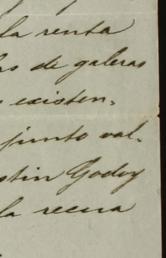 la renta
as de galeras
s existen,
junto val-
stin Godoy
la recua